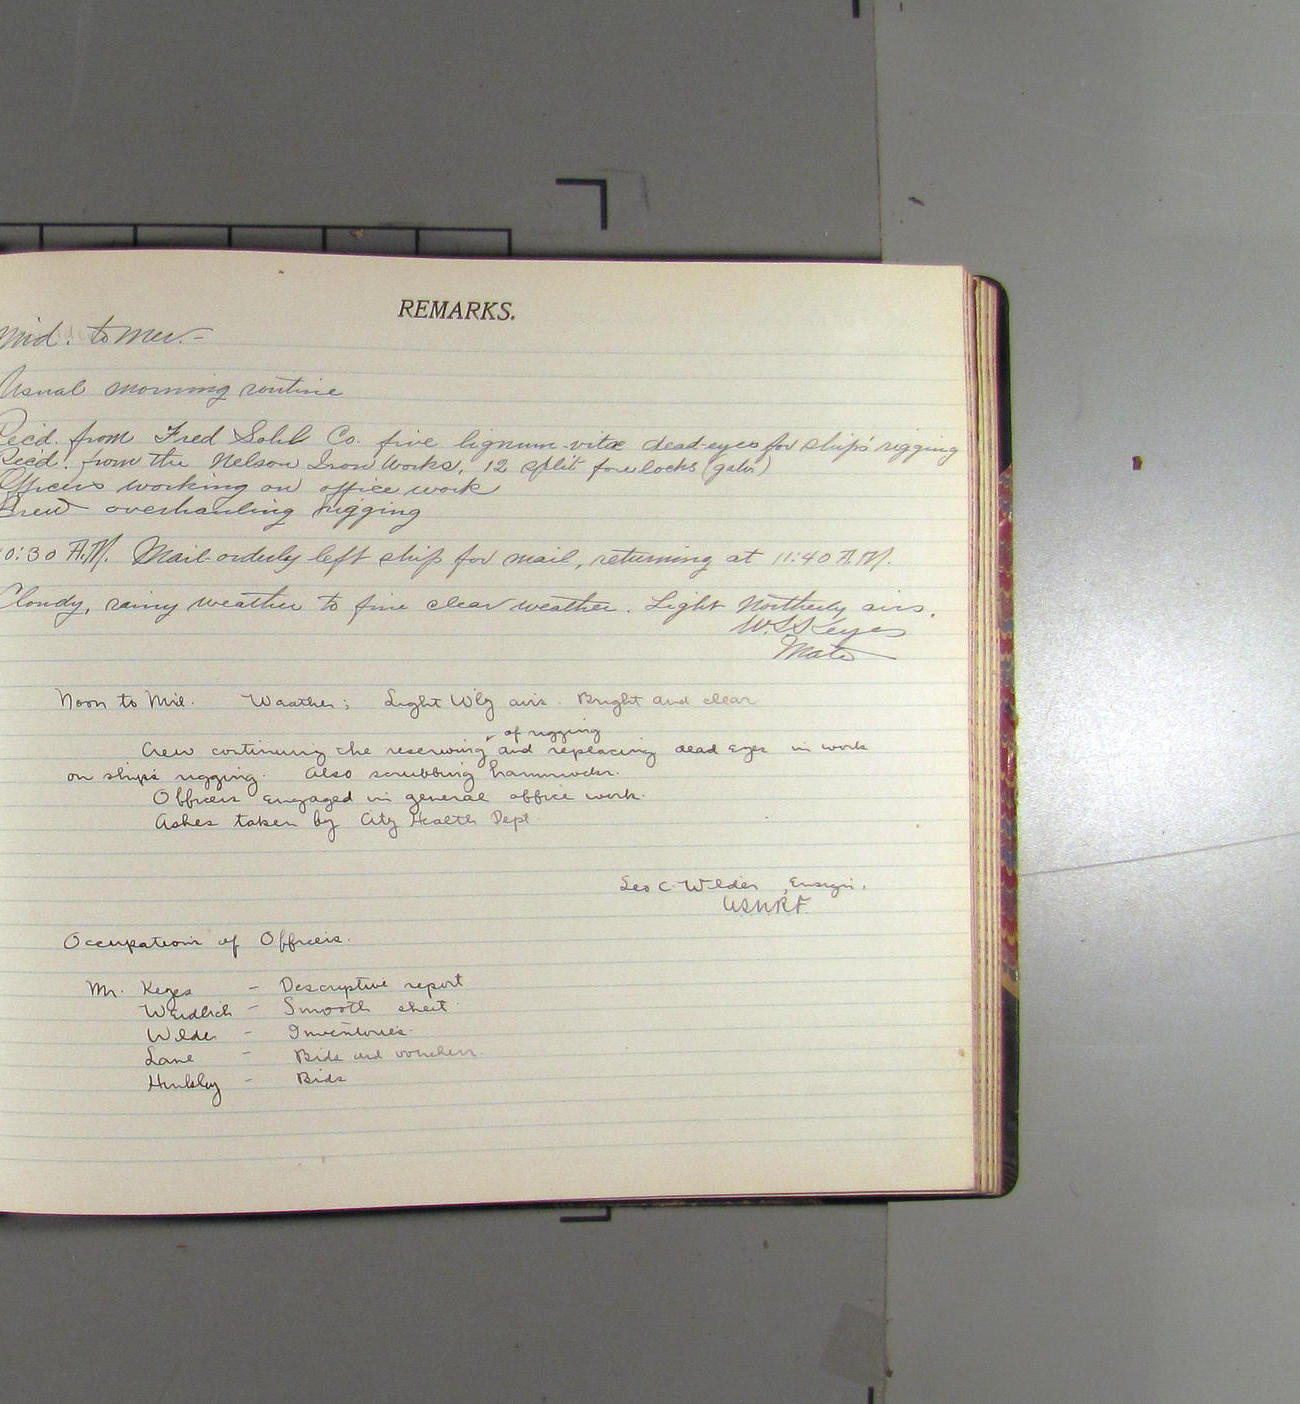 REMARKS.
Mid. to Mer. -
Usual morning routine
Rec'd. from Fred Sohl Co. five lignum-vitæ dead-eyes for ship's rigging
Recd. from the Nelson Iron Works, 12 split forelocks (galv)
Officers working on office work
Crew overhauling rigging
10:30 A.M. Mail-orderly left ship for mail, returning at 11:40 A.M.
Cloudy, rainy weather to fine clear weather. Light Northerly airs.
W.S. Keyes
Mate
Noon to Mid. Weather; Light W'ly airs. Bright and clear
of rigging
Crew continuing the reserving and replacing dead eyes in work
on ships rigging. Also scrubbing hammocks.
Officers engaged in general office work.
Ashes taken by City Health Dept
Leo C. Wilder, Ensign.
USNRF
Occupation of Officers.
Mr. Keyes - Descriptive report
Weidlich - Smooth sheet
Wilder - Inventories.
Lane - Bids and vouchers.
Hinkley - Bids